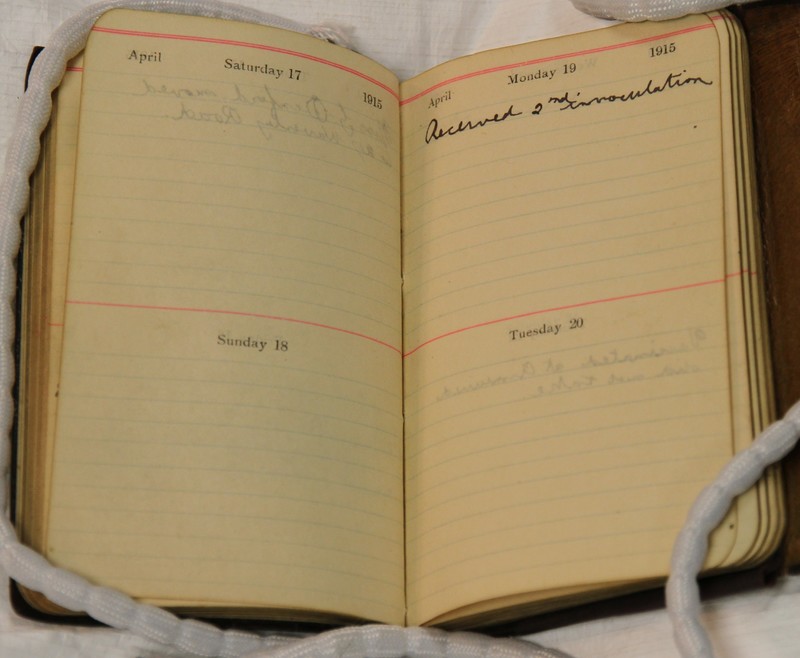 April Saturday 17 1915
Sunday 18
April Monday 19 1915
Received 2nd innoculation
Tuesday 20